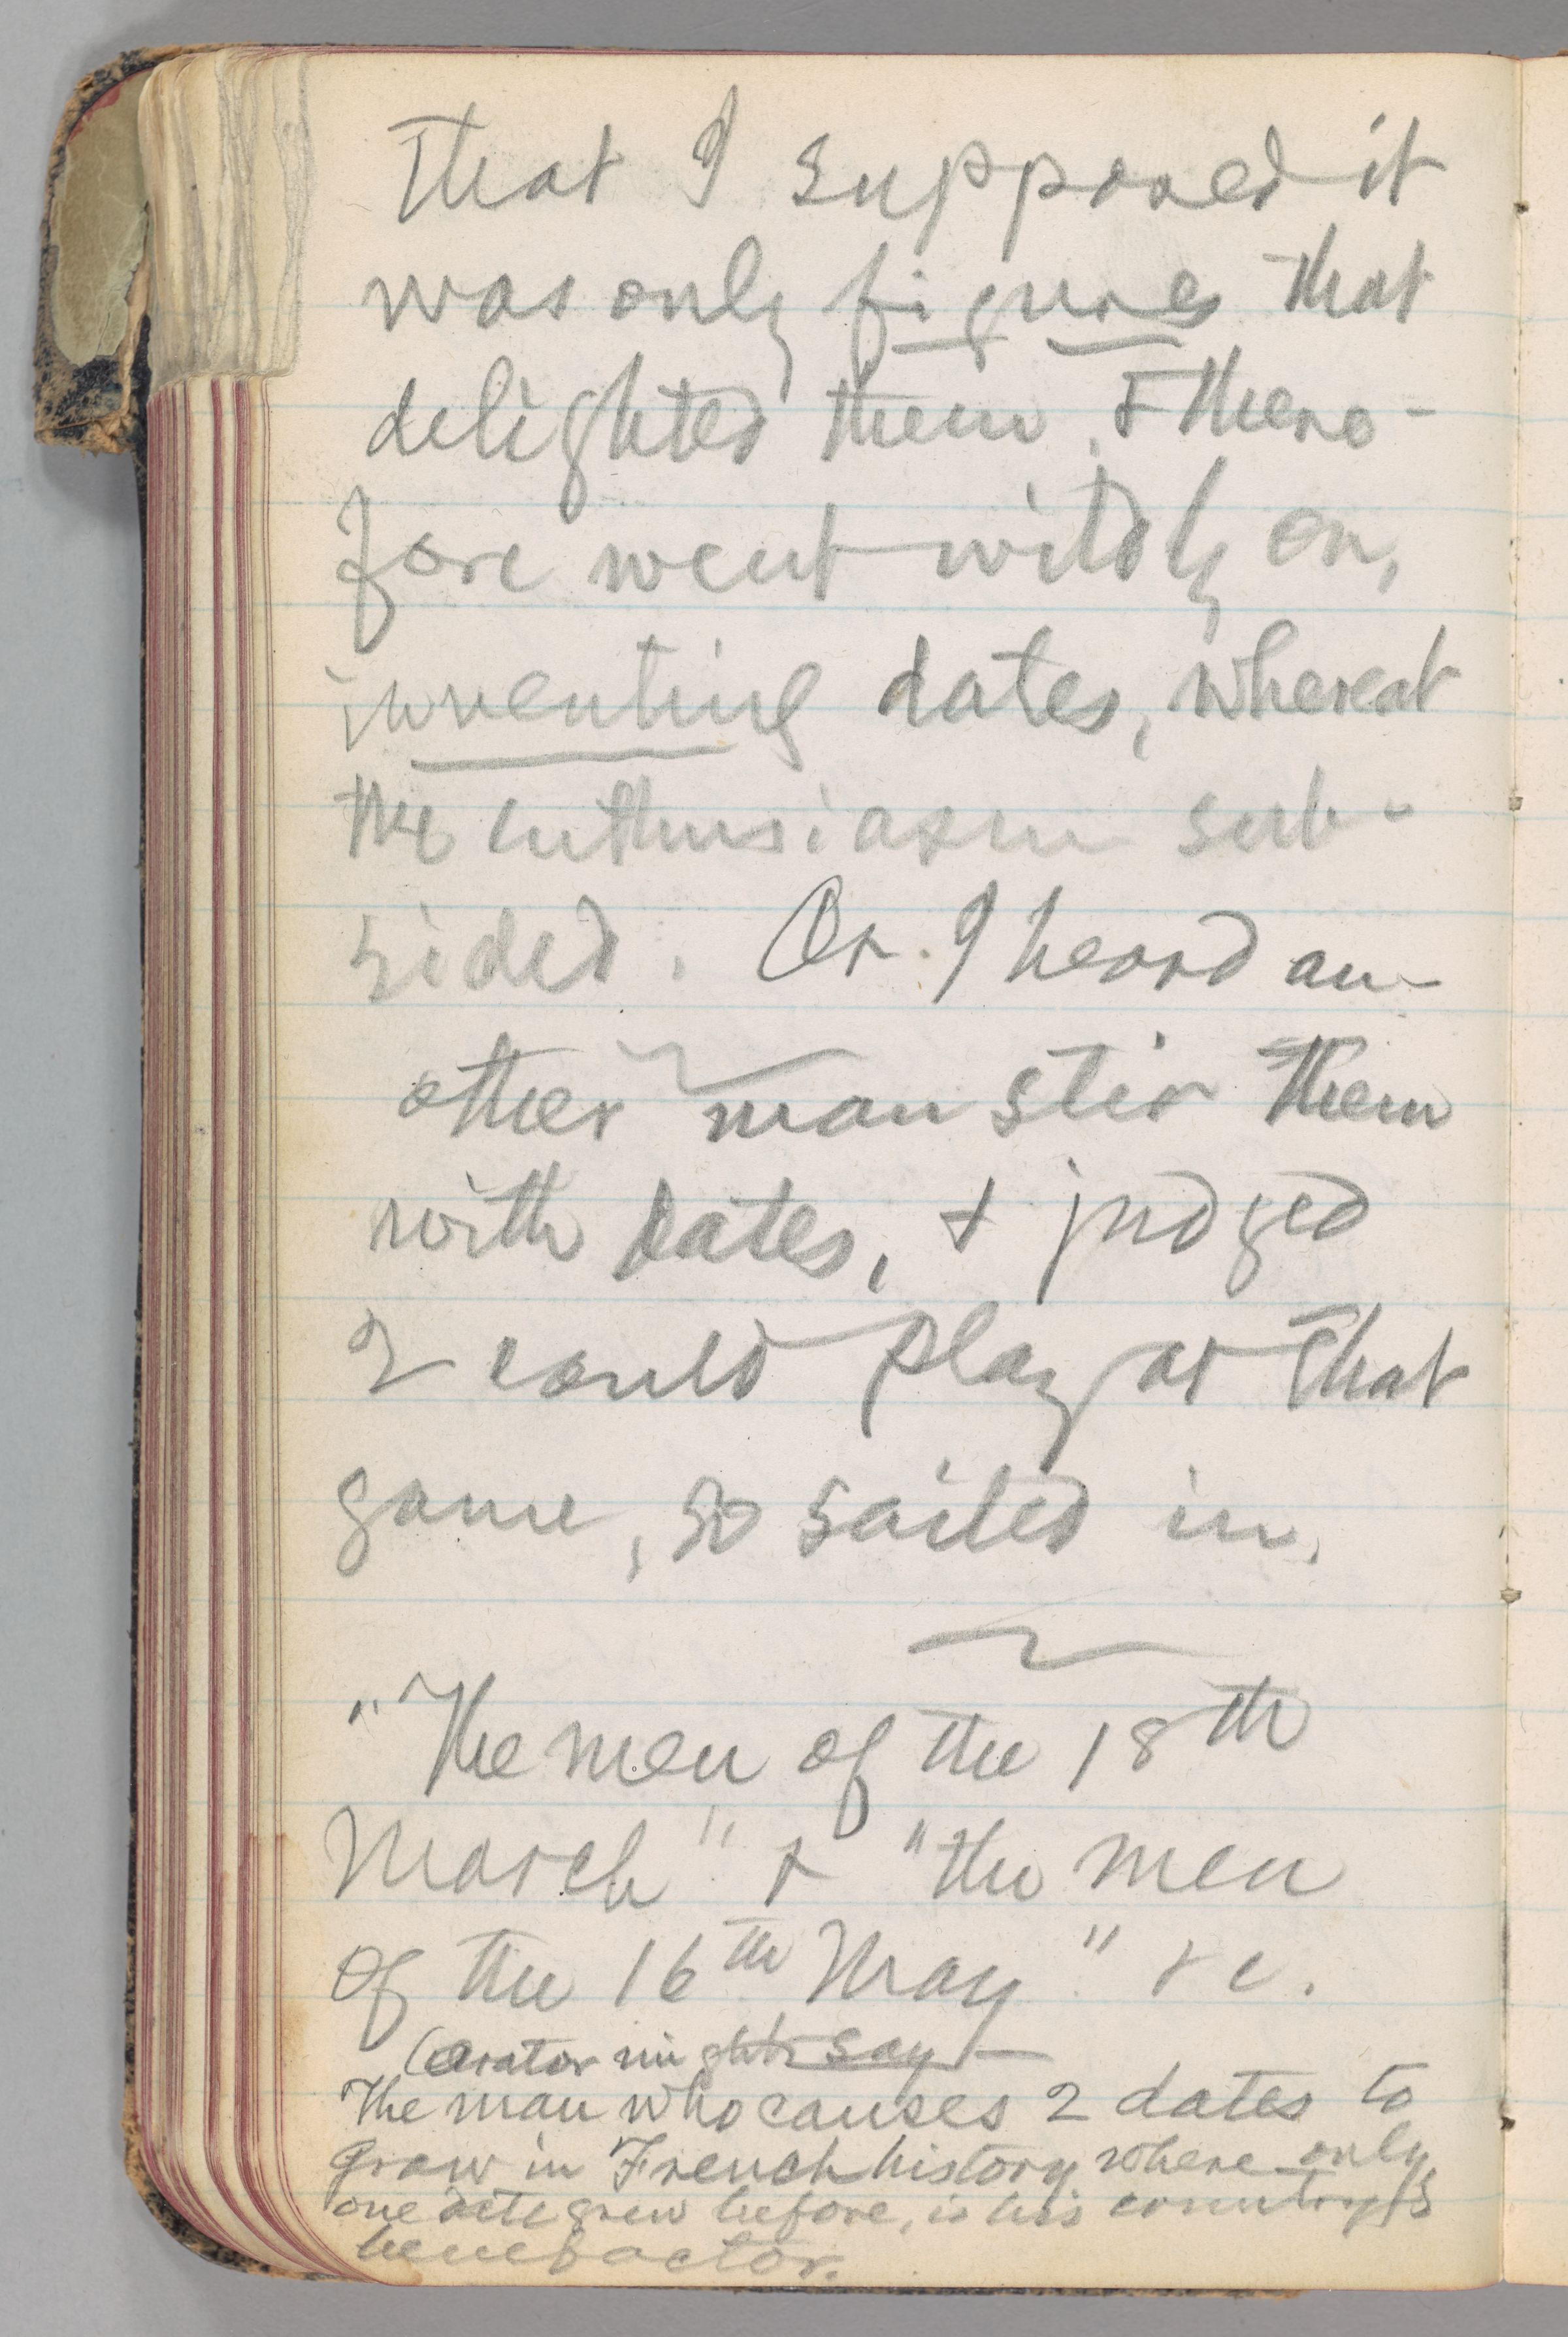 that I supposed it
was only figures that
delighted them, & there-
fore went wildly on,
inventing dates, whereat
the enthusiasm sub-
sided. Or I heard an-
other man stir them
with dates, & judged
I could play at that
game, so sailed in.
"The men of the 18th
March" & "the men
of the 16th May" &c.
(Orator might say—
The man who causes 2 dates to
grow in French history where only
one date grew before, is his country's
benefactor.